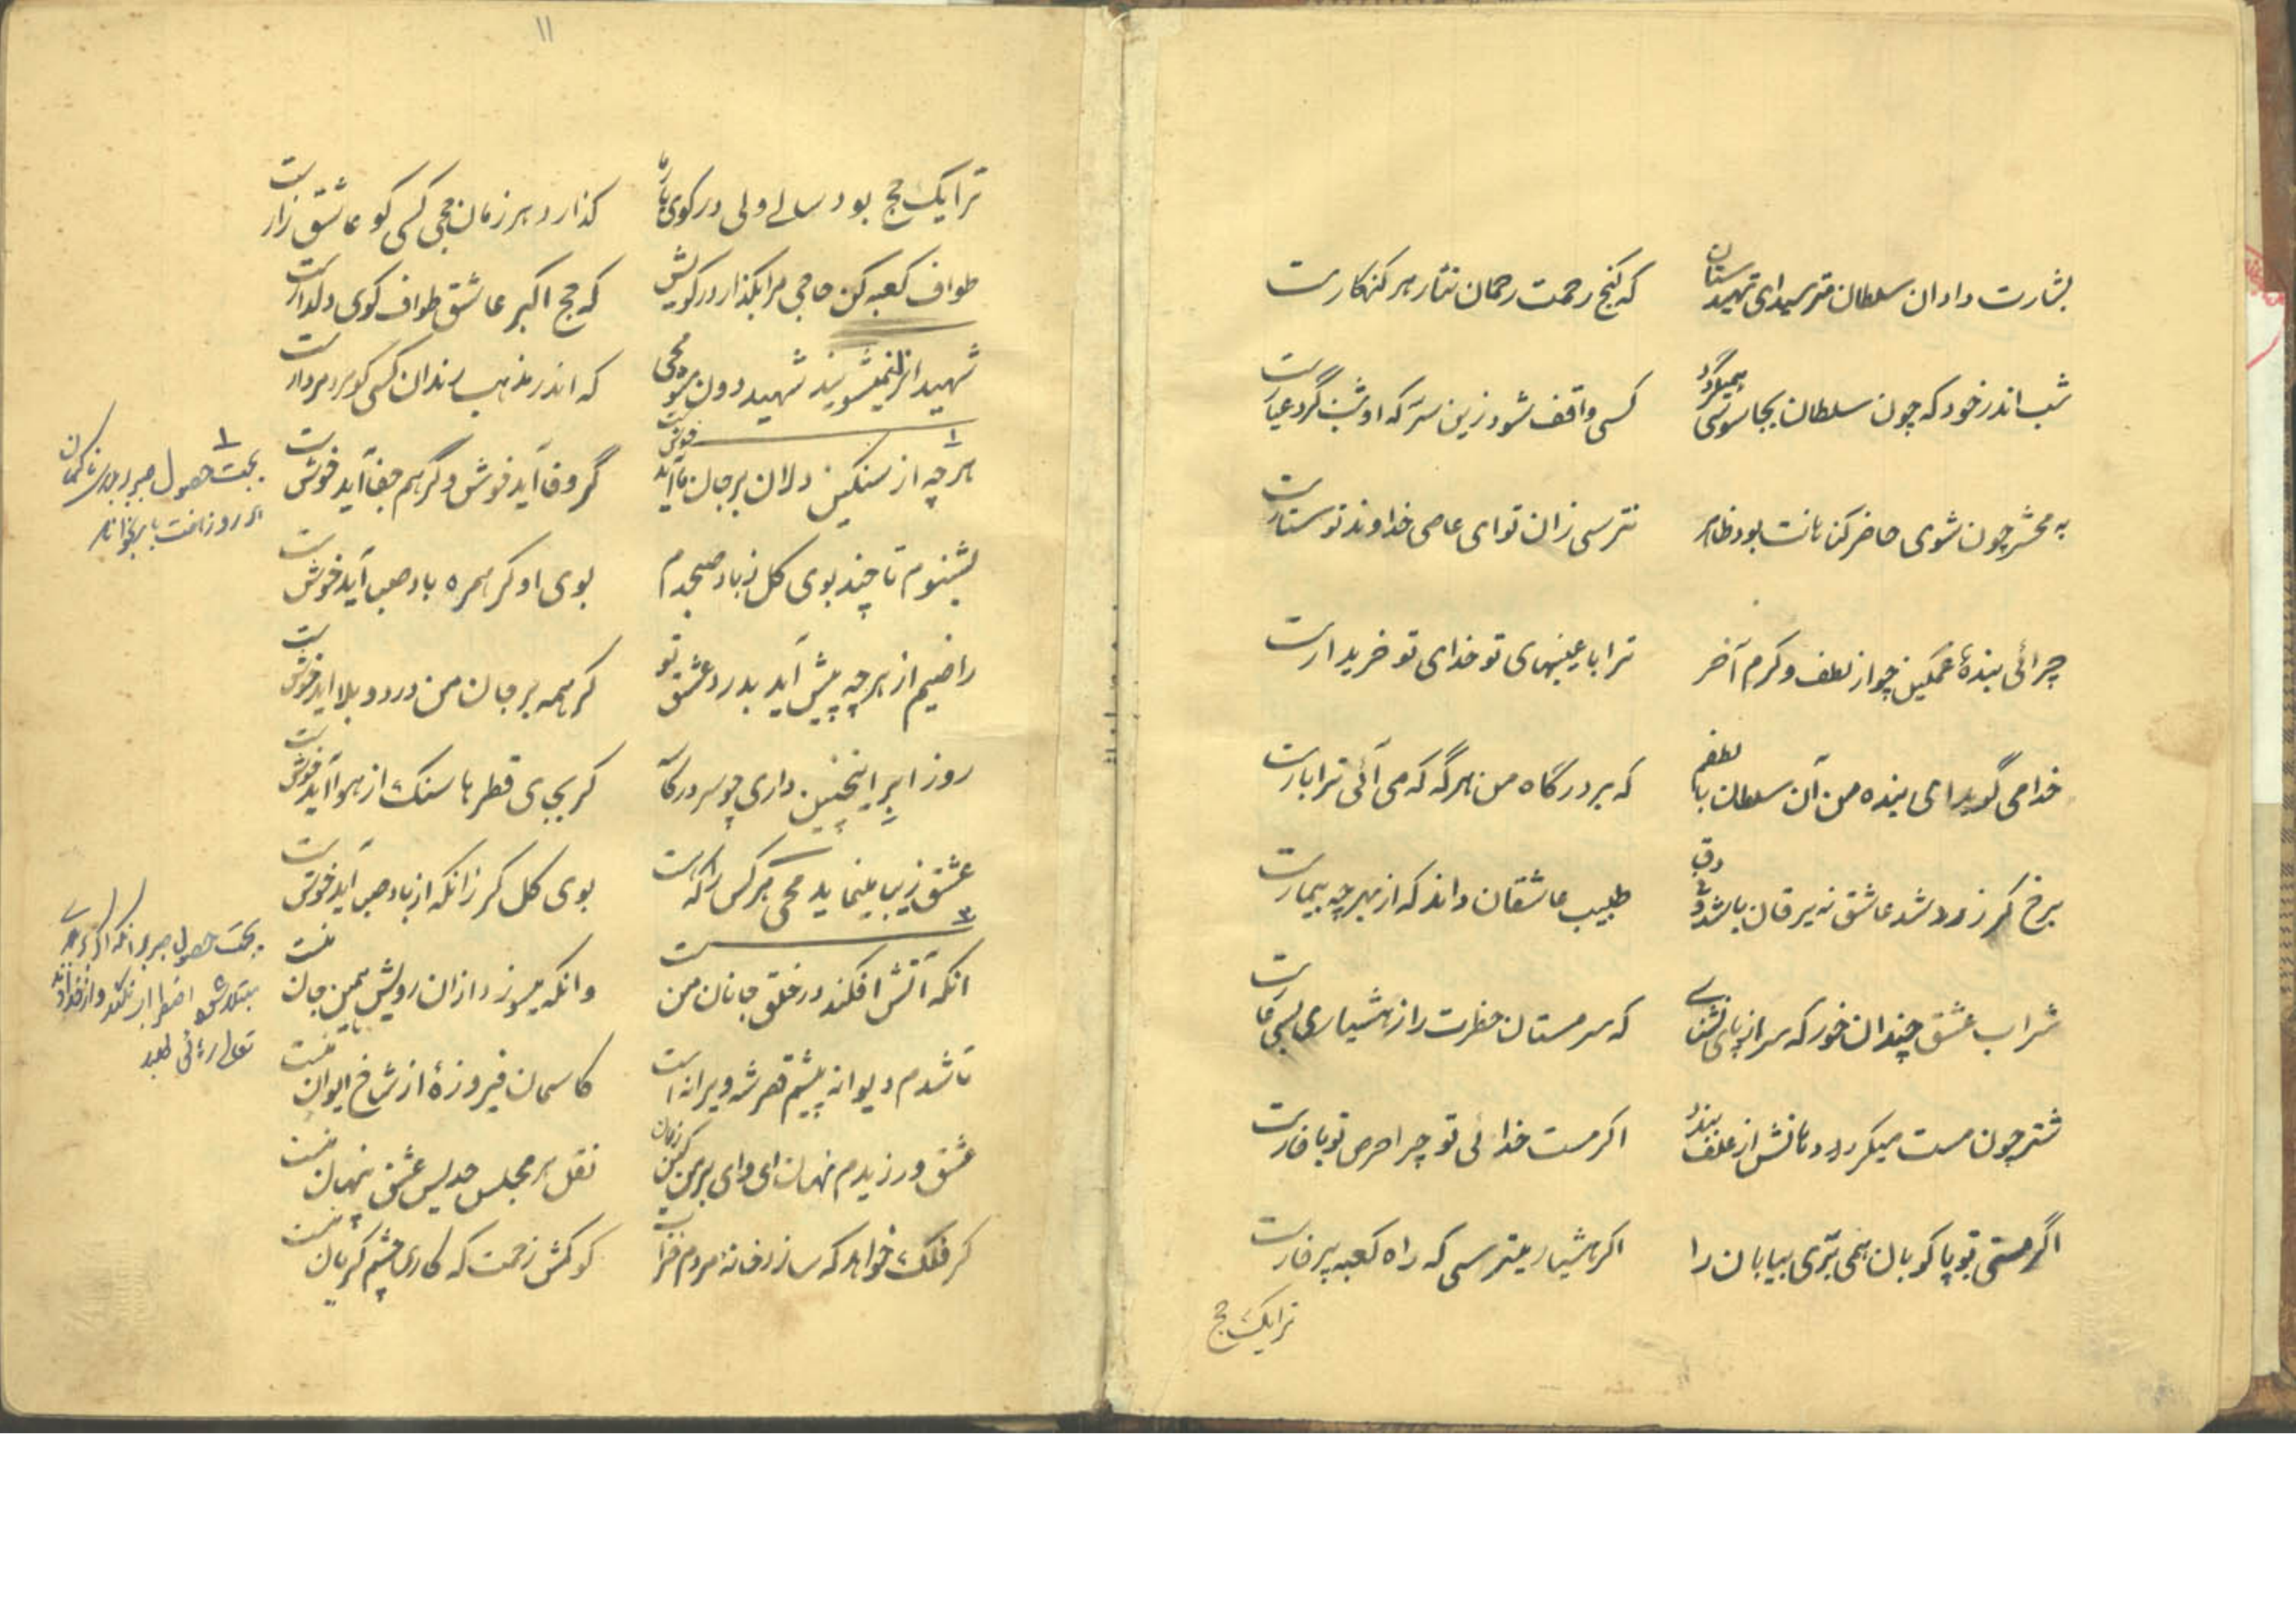 بشارت داد آن سلطان مترسید ای تهیدستان
که گنج رحمت رحمان نثار هر کنهکارست
شب اندر خود که چون سلطان بجاسوسی همیگردد
کسی واقف شود زین سر که او شب گرد عیارست
به محشر چون شوی حاضر کناهانت بود ظاهر
نترسی زان تو ای عاصی خداوند تو ستارست
چرائی بندهٔ غمکین چو از لطف و کرم آخر
ترا با عیبهای تو خدای تو خریدارست
خدا می گوید ای بنده من آن سلطان با لطفم
که بر درگاه من هرگه که می آئی ترا بارست
برخ کر زرد شد عاشق نه یرقان باشد و نی دق
طبیب عاشقان داند که از بهر چه بیمارست
شراب عشق چندان خور که سر از پای نشناسی
که سرمستان حضرت را از هشیاری بسی عارست
شتر چون مست میکردد دهانش از علف بندد
اکر مست خدائی تو چرا حرص تو با خارست
اگر مستی تو پا کوبان همی بُرّی بیابان را
اکر هشیار میترسی که راه کعبه پر خارست
ترا یک حج
۱۱
ترا یک حج بود سالی ولی در کوی یار ما
کذارد هر زمان حجی کسی کو عاشق زارست
طواف کعبه کن حاجی مرا بکذار در کویش
که حج اکبر عاشق طواف کوی دلدارست
شهیدانرا نمیشویند شهید دون مشو محی
که اندر مذهب رندان کسی کو مرد مردارست
۱
هر چه از سنکین دلان بر جان ما آید خوشست
گر وفا آید خوش و گر هم جفا آید خوشست
بشنوم تا چند بوی کل ز باد صبحدم
بوی او کر همره باد صبا آید خوشست
راضیم از هر چه پیش آید بدرد عشق تو
کر همه بر جان من درد و بلا آید خوشست
روز ابر اینچنین داری چو سر در کاسه
کر بجای قطرها سنک از هوا آید خوشست
عشق زیبا مینماید محی هر کس را که هست
بوی کل کر زانکه از باد صبا آید خوشست
۲
انکه آتش افکند در خلق جانان منست
وانکه میسوزد ازان رویش همین جان منست
تا شدم دیوانه پیشم قصر شه ویرانه است
کاسمان فیروزهٔ از شاخ ایوان منست
عشق ورزیدم نهان ای وای بر من کین زمان
نقل هر مجلس حدیث عشق پنهان منست
کر فلک خواهد که سازد خانهٔ مردم خراب
کو مکش زحمت که کار چشم کریان منست
۱
بجهت حصول صبر
بجهت حصول صبر